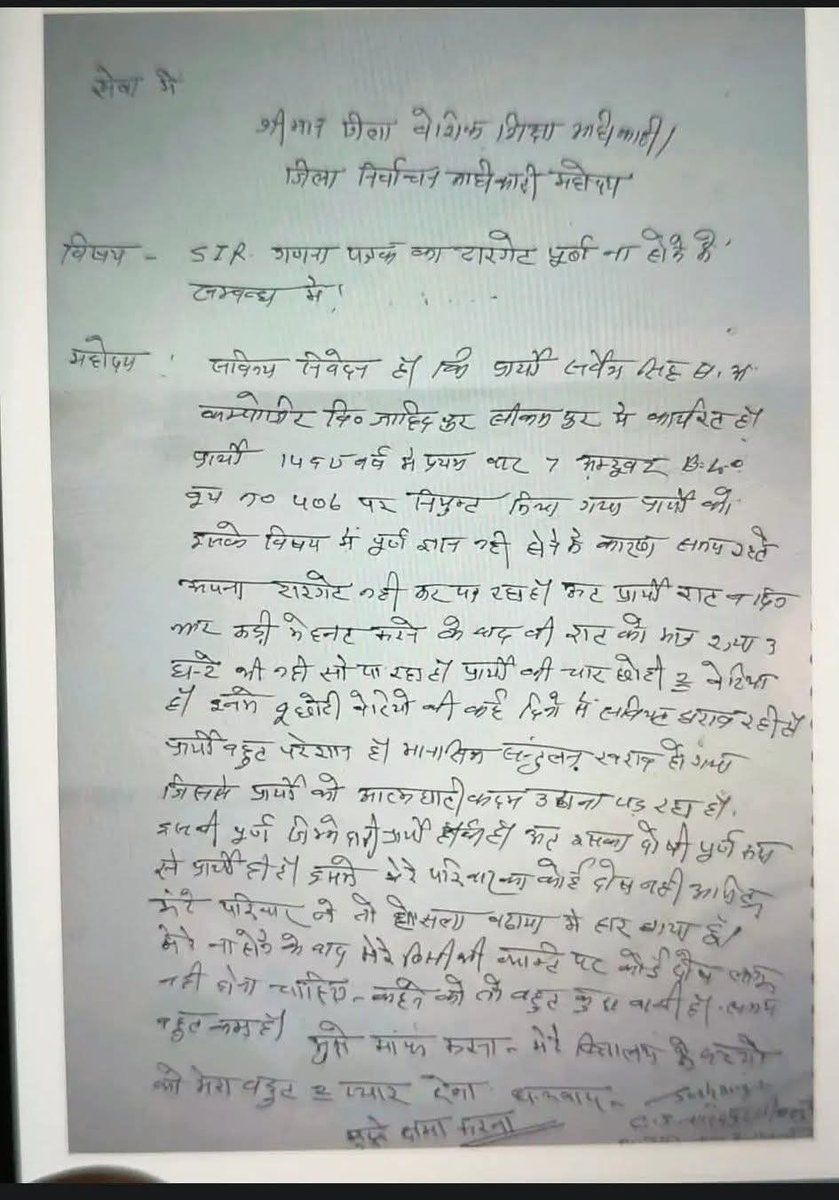 सेवा में
श्रीमान जिला बेशिक शिक्षा अधिकारी/
जिला निर्वाचन अधिकारी महोदय
विषय - SIR. गणना पत्रक का टारगेट पूर्ण ना होने के
सम्बन्ध में!
महोदय : सविनय निवेदन है। कि प्रार्थी सर्वेश सिंह स. अ.
कम्पोजिट वि० जाहिद पुर सीकम पुर में कार्यरत है।
प्रार्थी वर्ष में प्रथम बार 7 अक्टूबर B.L.O
बूथ न० 406 पर नियुक्त किया गया प्रार्थी को
इसके विषय में पूर्ण ज्ञान नही होने के कारण समय रहते
अपना टारगेट नही कर पा रहा है। अतः प्रार्थी रात व दिन
और कड़ी मेहनत करने के बाद भी रात को मात्र 2 या 3
घन्टे भी नही सो पा रहा है। प्रार्थी की चार छोटी 2 बेटिया
है। इनमे 2 छोटी बेटियो की कई दिनो से तबियत खराब रही है।
प्रार्थी बहुट परेशान है। मानसिक सन्तुलन खराब हो गया
जिससे प्रार्थी को आत्मघाती कदम उठाना पड़ रहा है।
इसकी पूर्ण जिम्मेदारी प्रार्थी की है। अतः इसका दोषी पूर्ण रूप
से प्रार्थी ही है। इसमे मेरे परिवार का कोई दोष नही
मेरे परिवार ने तो होसला बढाया मै हार गया हूँ।
मेरे ना होने के बाद मेरे किसी भी व्यक्ति पर कोई दोष
नही होना चाहिए - कहने को तो बहुत कुछ बाकी है। समय
बहुत कम है। मुझे माफ करना - मेरे विद्यालय के बच्चो
को मेरा बहुट 2 प्यार देना धन्यवाद -
मुझे क्षमा करना